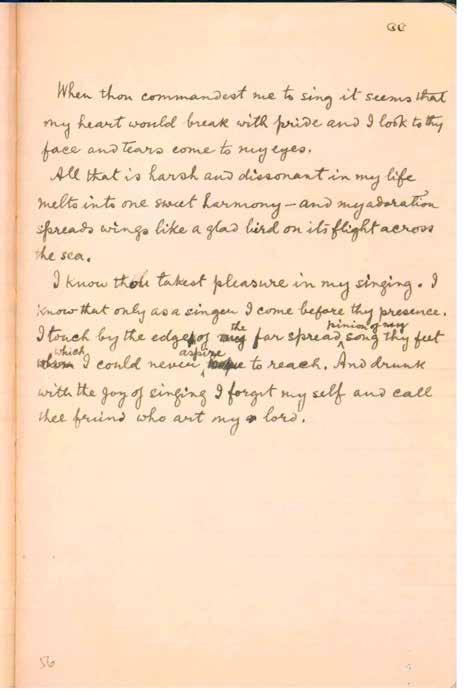 When thou commandest me to sing it seems that
my heart would break with pride and I look to thy
face and tears come to my eyes.
All that is harsh and dissonant in my life
melts into one sweet harmony – and my adoration
spreads wings like a glad bird on its flight across
the sea.
I know thou takest pleasure in my singing. I
know that only as a singer I come before thy presence.
I touch by the edge of the far spread pinion of my song thy feet
which I could never aspire to reach. And drunk
with the joy of singing I forget my self and call
thee friend who art my lord.
56